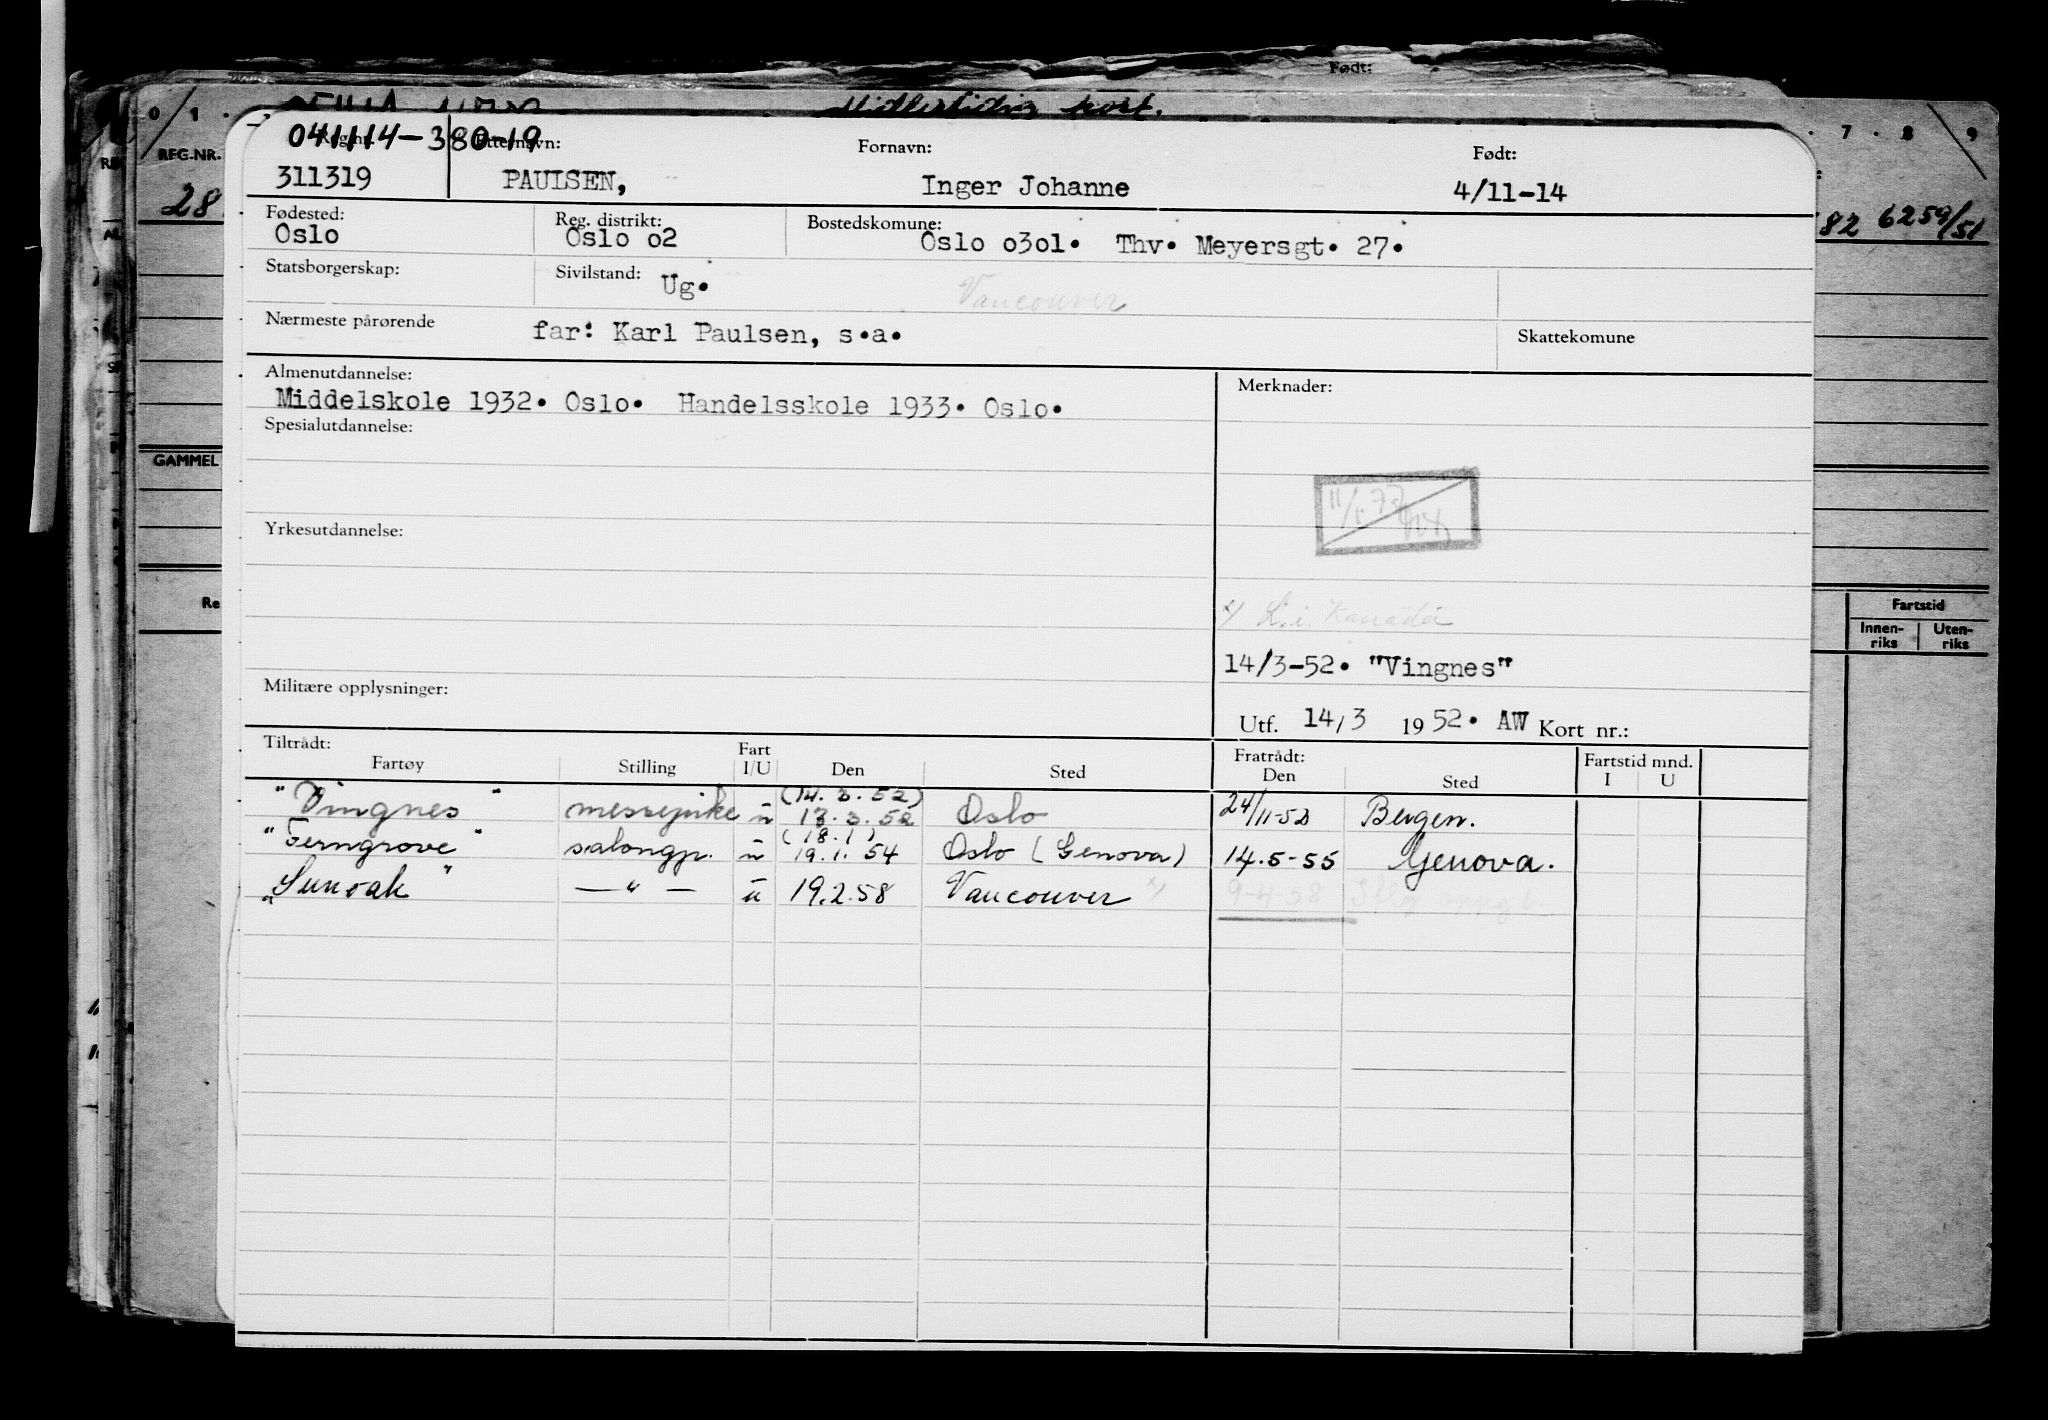 Født:
Midlertidig kort.
0 1 7 8 9
041114-380-19
Reg.nr. Etternavn: Fornavn: Født:
REG.NR.
311319 PAULSEN, Inger Johanne 4/11-14
28 82 6259/51
Fødested: Reg. distrikt: Bostedskomune:
Oslo Oslo o2 Oslo o3o1. Thv. Meyersgt. 27.
Statsborgerskap: Sivilstand: Ug.
Vancouver
Nærmeste pårørende far: Karl Paulsen, s.a. Skattekomune
Almenutdannelse: Merknader:
Middelskole 1932. Oslo. Handelsskole 1933. Oslo.
Spesialutdannelse:
GAMMEL
Yrkesutdannelse:
x/ L.i. Kanada
Fartstid
Innen-riks Uten-riks
14/3-52. "Vingnes"
Militære opplysninger:
Utf. 14/3 1952. AW Kort nr.:
Tiltrådt: Fratrådt:
Fartøy Stilling Fart I/U Den Sted Den Sted Fartstid mnd. I U
(14.3.52)
"Vingnes" messepike u 13.3.52 Oslo 24/11-52 Bergen.
(18.1)
"Ferngrove" salongp. u 19.1.54 Oslo (Genova) 14.5-55 Genova.
"Sunoak" —"— u 19.2.58 Vancouver x/ 9-4-58